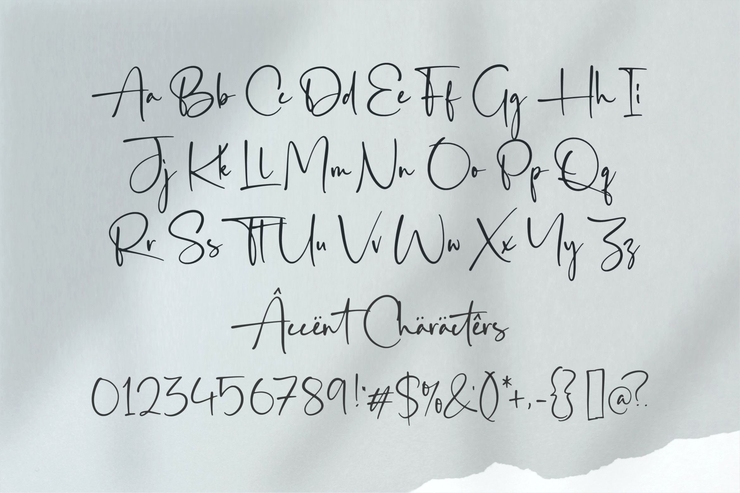 Aa Bb Cc Dd Ee Ff Gg Hh Ii
Jj Kk Ll Mm Nn Oo Pp Qq
Rr Ss Tt Uu Vv Ww Xx Yy Zz
Âccënt Chäräctêrs
0123456789!:#$%&;()*+,-{}[]@?.